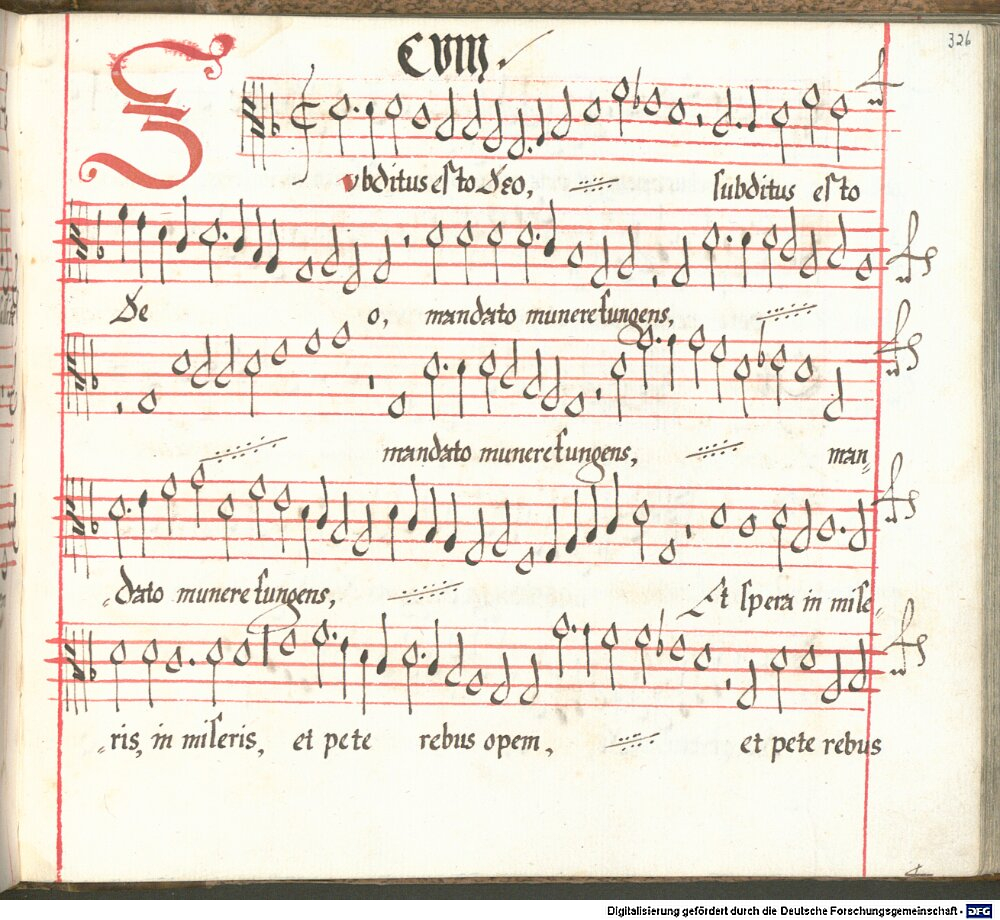 326
CVIII
Subditus esto Deo, subditus esto
De o, mandato munere fungens,
mandato munere fungens, man-
dato munere fungens, Et spera in mise-
ris, in miseris, et pete rebus opem, et pete rebus
Digitalisierung gefördert durch die Deutsche Forschungsgemeinschaft - DFG